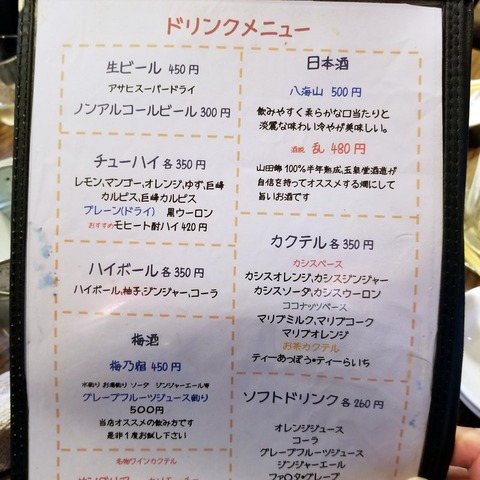 ドリンクメニュー
生ビール 450円
アサヒスーパードライ
ノンアルコールビール 300円
チューハイ 各350円
レモン,マンゴー,オレンジ,ゆず,巨峰
カルピス,巨峰カルピス
プレーン(ドライ) 黒ウーロン
おすすめ モヒート酎ハイ 420円
ハイボール 各350円
ハイボール,柚子,ジンジャー,コーラ
梅酒
梅乃宿 450円
水割り お湯割り ソーダ ジンジャーエール等
グレープフルーツジュース割り
500円
当店オススメの飲み方です
是非1度お試し下さい
名物ワインカクテル
日本酒
八海山 500円
飲みやすく柔らかな口当たりと
淡麗な味わい冷やが美味しい。
乱 480円
山田錦100%半年熟成,玉泉堂酒造が
自信を持ってオススメする燗にして
旨いお酒です
カクテル 各350円
カシスベース
カシスオレンジ,カシスジンジャー
カシスソーダ,カシスウーロン
ココナッツベース
マリブミルク,マリブコーク
マリブオレンジ
お茶カクテル
ティーあっぷる•ティーらいち
ソフトドリンク 各260円
オレンジジュース
コーラ
グレープフルーツジュース
ジンジャーエール
ファンタ•グレープ